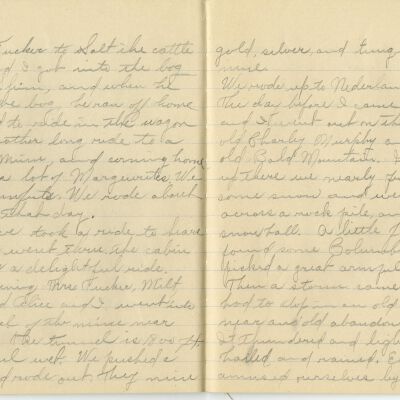 Tucker to Salt the cattle
d I got into the bog
firm, and when he
the bog, he ran off home
d to ride in the wagon
other long ride to a
Mine, and coming home
a lot of Marguerites. We
We rode about
that day.
we took a ride to
went thru the cabin
a delightful ride.
ning Mrs Tucker, Milt
d Elsie and I went
of the mine near
The tunnel is 1800 ft.
wet. We pushed a
d rode out. They mine
gold, silver, and tung
mine.
We rode up to Nederlan
The day before I came
and I went out on th
old Charley Murphy a
old Bald Mountain.
up there we nearly
some snow and we
across a rock pile, an
snow ball. A little f
found some Columb
picked a great armful
Then a storm came
had to stop in an old
near and old abandon
It thundered and ligh
hailed and rained. E
amused ourselves by